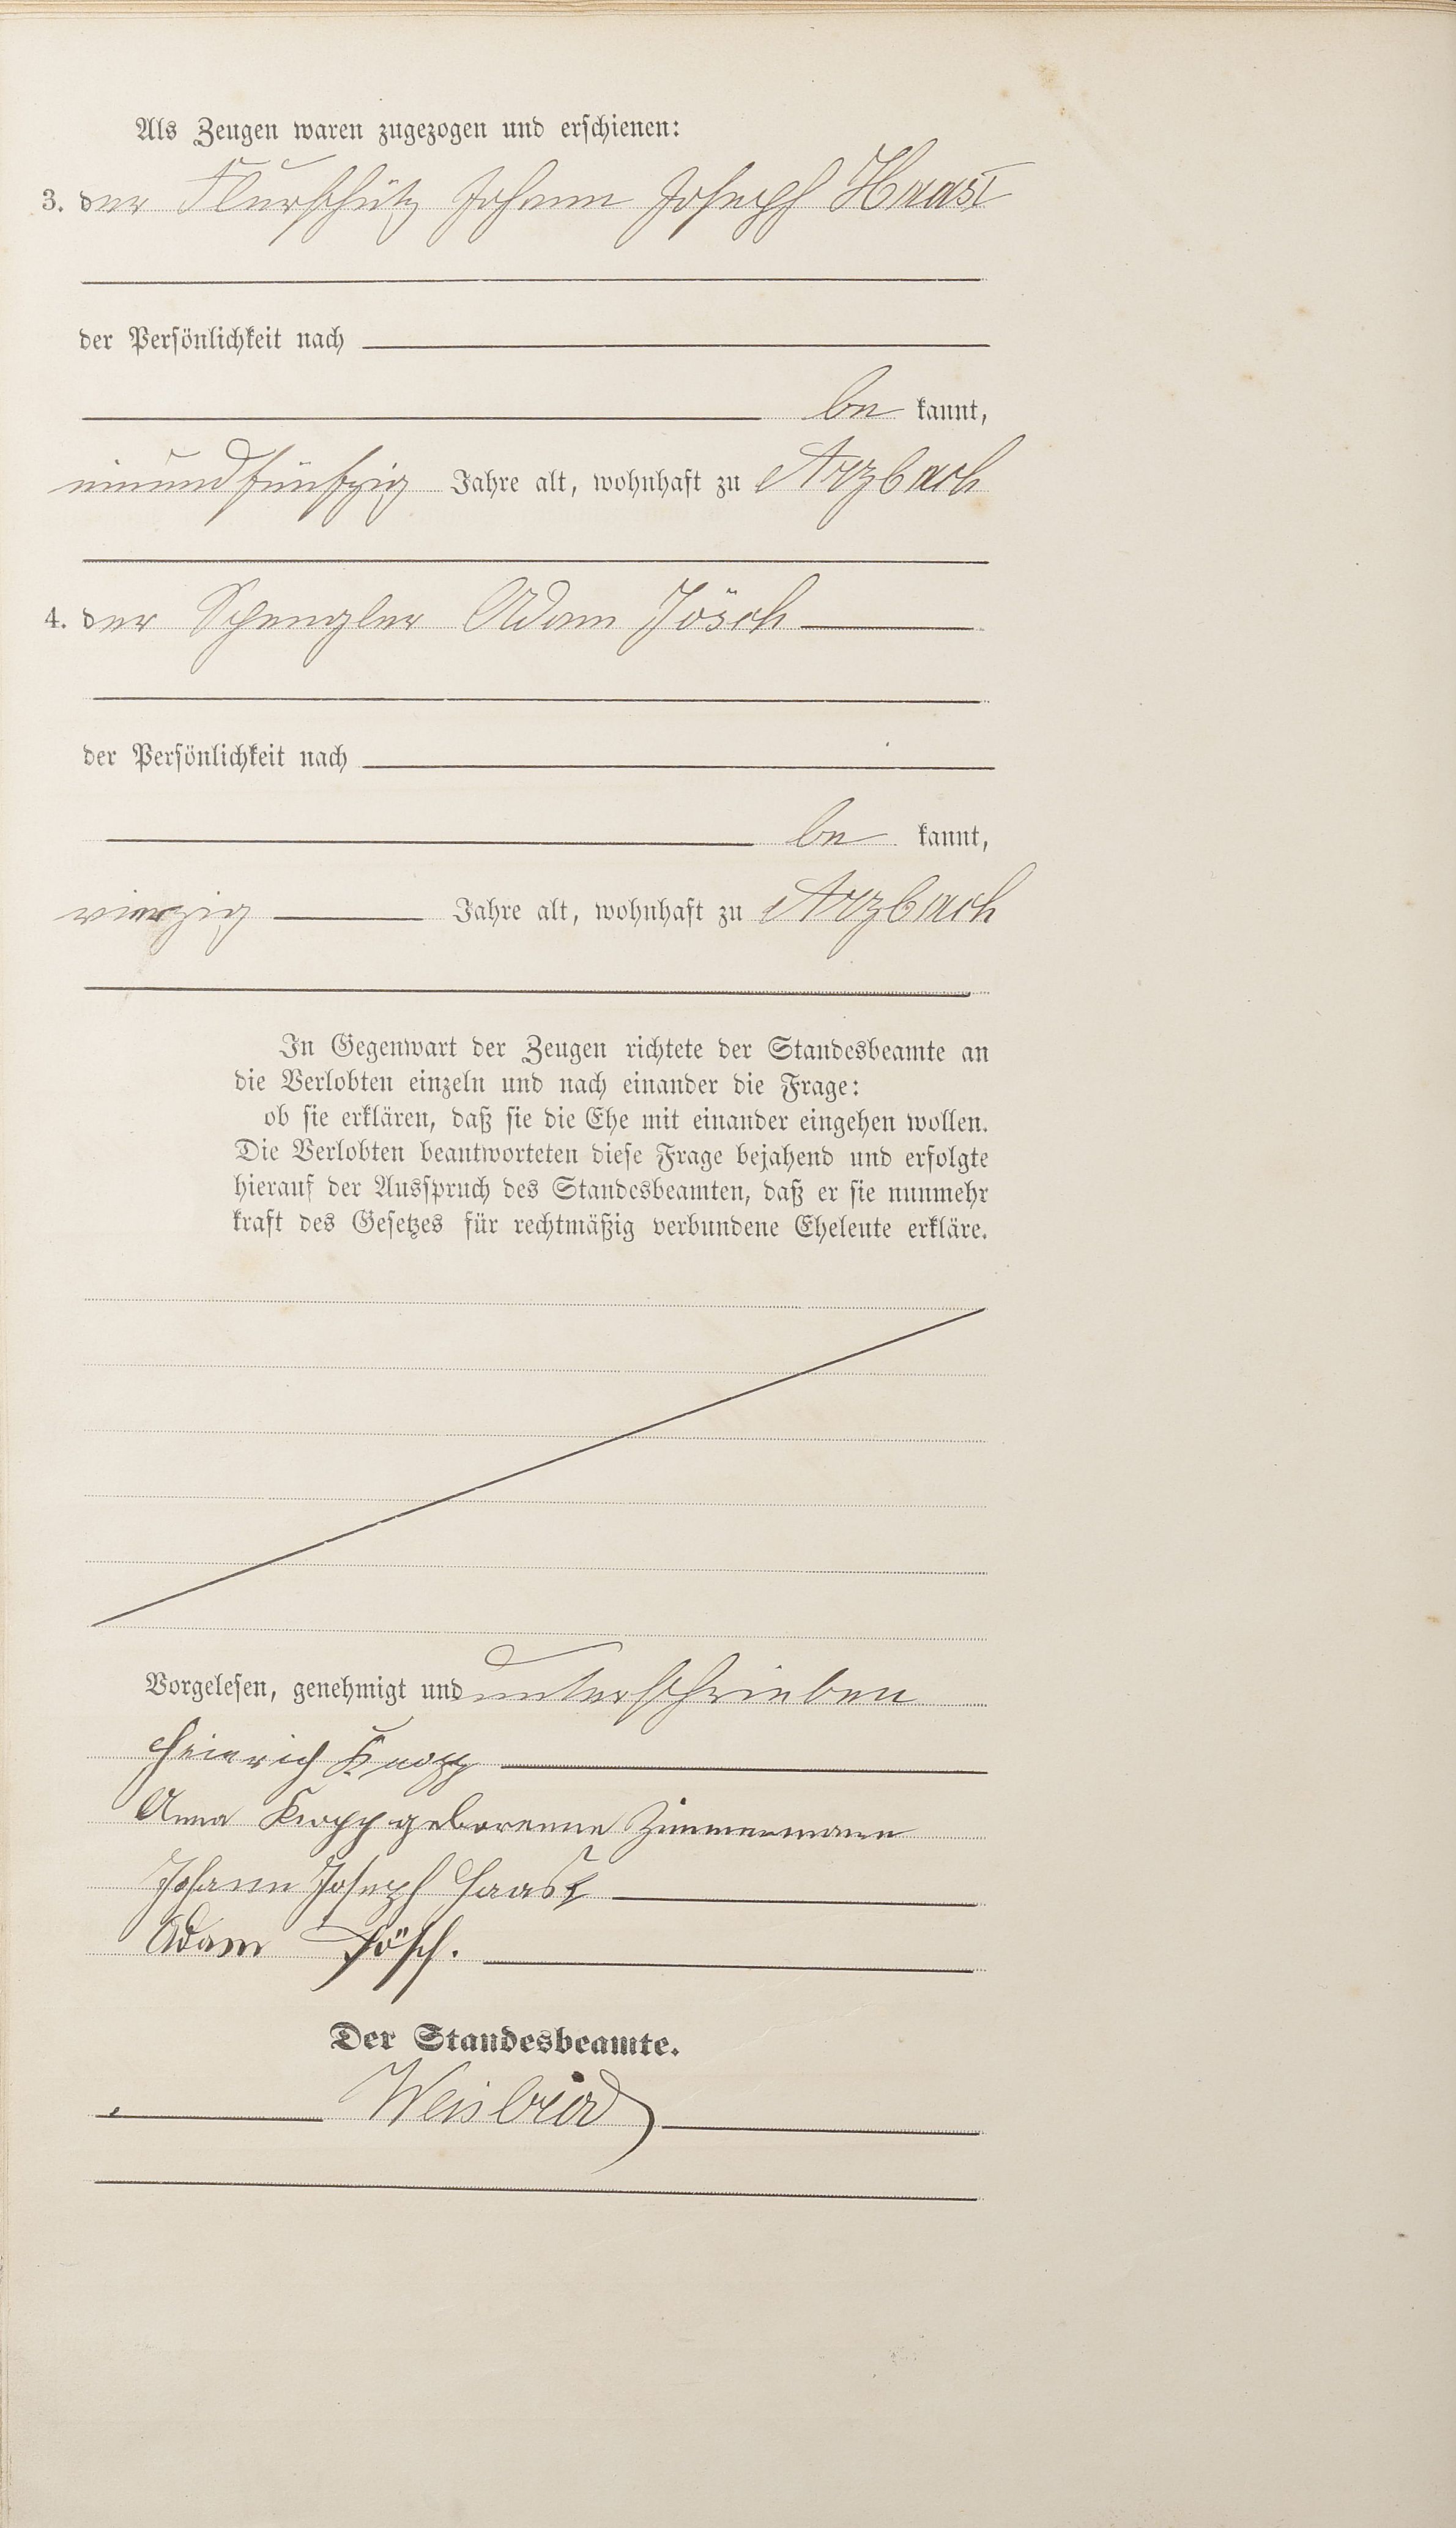 Als Zeugen waren zugezogen und erschienen:
3. der Flurschütz Johann Joseph Haast
der Persönlichkeit nach
be kannt,
einundfünfzig Jahre alt, wohnhaft zu Arzbach
4. der Spengler Adam Jösch
der Persönlichkeit nach
be kannt,
vierzig Jahre alt, wohnhaft zu Arzbach
In Gegenwart der Zeugen richtete der Standesbeamte an
die Verlobten einzeln und nach einander die Frage:
ob sie erklären, daß sie die Ehe mit einander eingehen wollen.
Die Verlobten beantworteten diese Frage bejahend und erfolgte
hierauf der Ausspruch des Standesbeamten, daß er sie nunmehr
kraft des Gesetzes für rechtmäßig verbundene Eheleute erkläre.
Vorgelesen, genehmigt und unterschrieben
Heinrich Knopp
Anna Knopp geborenne Zimmermann
Johann Joseph Haast
Adam Jösch.
Der Standesbeamte.